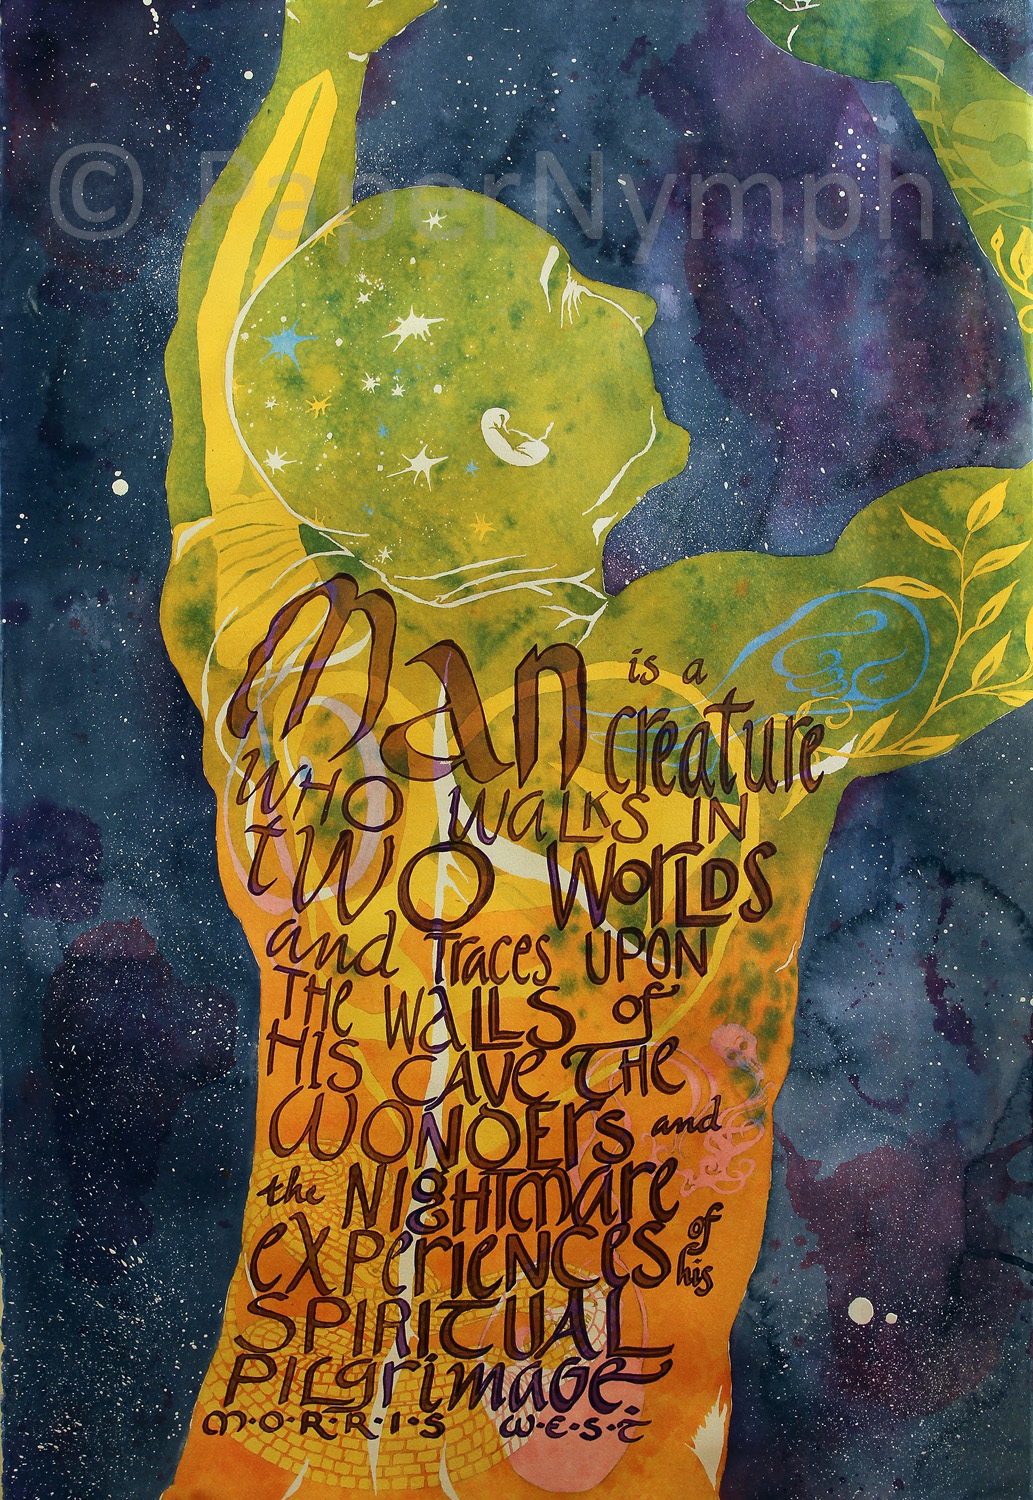 © PaperNymph
Man is a
creature
WHO WALKS IN
TWO WORLDS
and Traces UPON
THE WALLS of
HIS CAVE THE
WONDERS and
the NIGHTMARE
EXPERIENCES of his
SPIRITUAL
PILgrimage.
M·O·R·R·I·S W·E·S·T